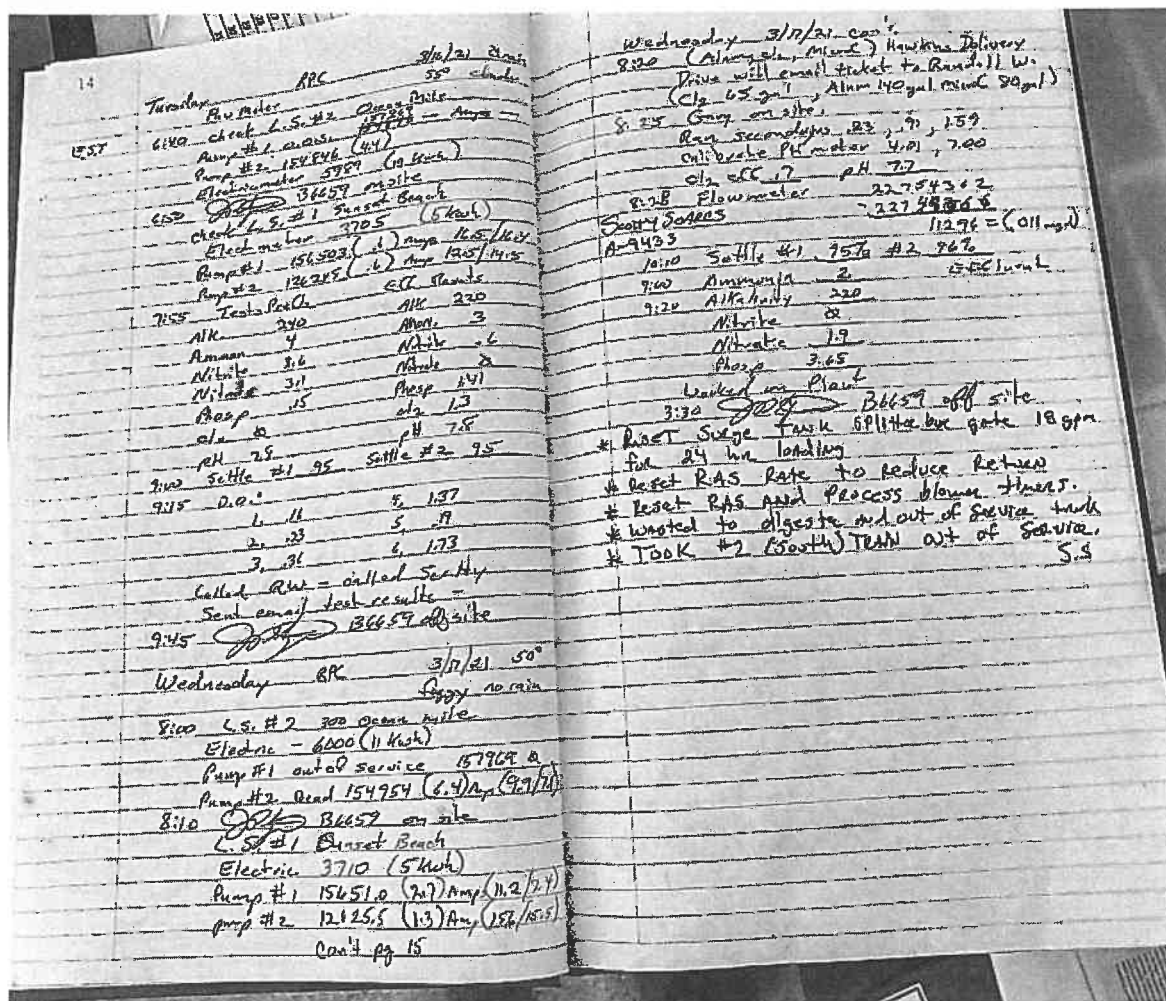 14
Tuesday RPC 3/16/21
55°
EST 6:40 check L.S. #2 Ocean Mile
Pump #1 0.00S. Amps —
Pump #2 154846 (4.4)
Electric meter 5989 (19 Kwh)
6:50 B6659 on site
check L.S. #1 Sunset Beach
Elect meter 3705 (5 Kwh)
Pump #1 156503 (.6) Amp 16.5/16.4
Pump #2 (.6) Amp 12.5/14.5
7:55 Tests Eff Results
Alk 240 Alk 220
Ammon 4 Amon. 3
Nitrite 3.6 Nitrite .6
Nitrate 3.1 Nitrate
Phosp .15 Phosp 1.41
cl2 cl2 1.3
pH pH 7.8
9:00 Settle #1 95 Settle #2 95
9:15 D.O.:
1, .11 4, 1.37
2, .23 5, .19
3, .31 6, 1.73
Called RW - called Scotty
Sent email test results -
9:45 B6659 off site
Wednesday RPC 3/17/21 50°
foggy no rain
8:00 L.S. #2 300 Ocean mile
Electric - 6000 (11 Kwh)
Pump #1 out of service 157969
Pump #2 Read 154954 (6.4) Amp (9.9/
8:10 B6659 on site
L.S. #1 Sunset Beach
Electric 3710 (5 Kwh)
Pump #1 15651.0 (2.7) Amp (11.2/7.4)
pump #2 12125.5 (1.3) Amp (15.6/15.5)
Con't pg 15
Wednesday 3/17/21 con't
8:20 (Alum, cl2, ) Hawkins Delivery
Drive will email ticket to Randall W.
(Cl2 65 gal, Alum 140 gal 80 gal)
8:25 Gary on site.
Ran secondarys .23, .91, 1.59
Calibrate PH meter 4.01, 7.00
cl2 eff .7 pH 7.7
8:28 Flowmeter 227754362
Scotty Soares
A-9423 11296 = (.011 mgd)
10:10 Settle #1 95% #2 96%
9:00 Ammonia 2
9:20 Alkalinity 220
Nitrite
Nitrate 1.9
Phosp 3.65
Worked on Plant
3:30 B6659 off site
* Reset Surge Tank Splitter box gate 18 gpm
for 24 hr loading
* Reset RAS Rate to Reduce Return
* Reset RAS And Process blower timers.
* Wasted to digester and out of service tank
* Took #2 (South) Train out of Service.
S.S